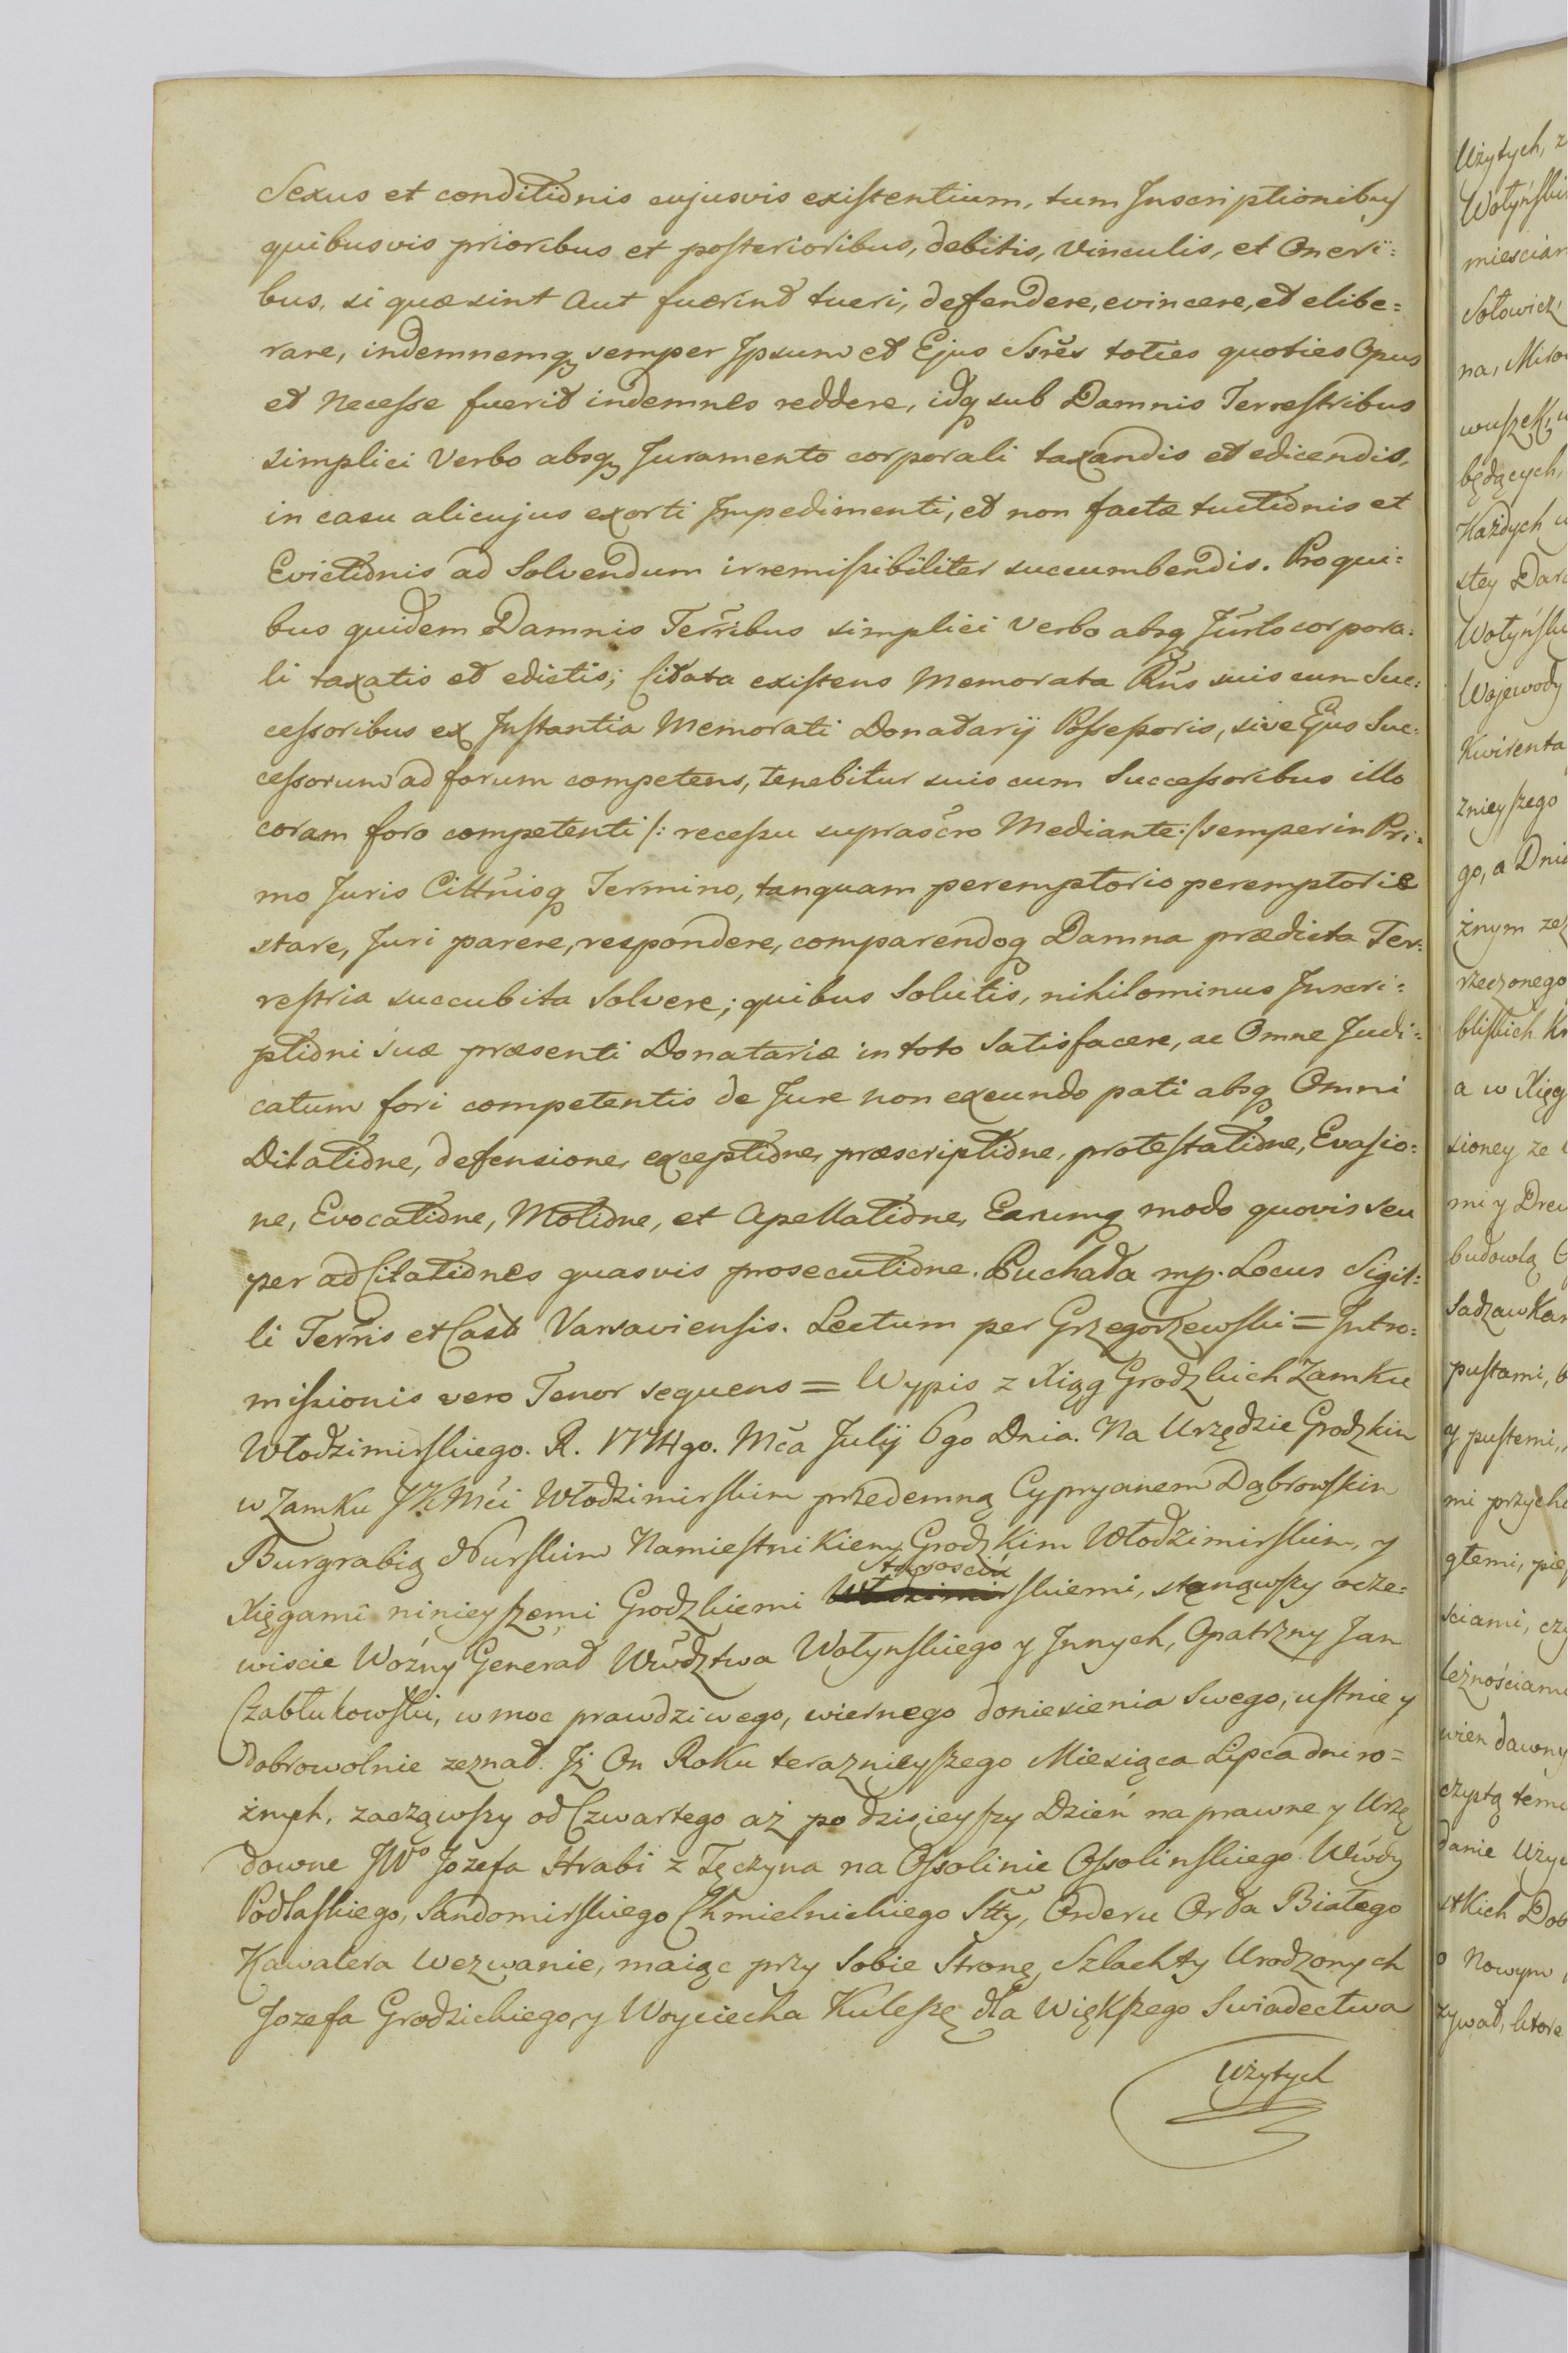 Sexus et conditiõnis cujusvis existentium, tum Inscriptionibus
quibusvis prioribus et posterioribus, debitis, Vinculis, et Oneri=
bus, si quæ sint Aut fuerint tueri, defendere, evincere, et elibe=
rare, indemnemq semper Ipsum et Ejus Ssrẽs toties quoties Opus
et Necesse fuerit indemnes reddere, idq sub Damnis Terrestribus
simplici Verbo absq Juramento corporali taxandis et edicendis,
in casu alicujus exorti Impedimenti, et non factæ tuitiõnis et
Evictiõnis ad Solvendum irremissibiliter succumbendis. Pro qui=
bus quidem Damnis Terr̃ibus simplici Verbo absq Jur̃to corpora=
li taxatis et edictis; Citata existens Memorata Rñs suis cum Suc=
cessoribus ex Instantia Memorati Donatarij Possessoris, sive Ejus Suc=
cessorum ad forum competens, tenebitur suis cum Successoribus illo
coram foro competenti /: recessu suprascr̃o Mediante :/ semper in Pri=
mo Juris Citt̃nisq Termino, tanquam peremptorio peremptorie
stare, Juri parere, respondere, comparendoq Damna prædicta Ter=
restria succubita Solvere; quibus Solutis, nihilominus Inscri=
ptiõni suæ præsenti Donatariæ in toto Satisfacere, ac Omne Judi=
catum fori competentis de Jure non exeundo pati absq Omni
Dilatiõne, defensione, exceptiõne, præscriptiõne, protestatiõne, Evasio=
ne, Evocatiõne, Motiõne, et Apellatiõne, Earumq modo quovis seu
per ad Citatiõnes quasvis prosecutiõne. Puchała mp. Locus Sigil=
li Terr̃is et Cast̃ Varsaviensis. Lectum per Grzegorzewski = Intro=
missionis vero Tenor sequens = Wypis z Xiąg Grodzkich Zamku
Włodzimirskiego. R. 1774go. Mc̃a Julij 6go Dnia. Na Urzędzie Grodzkim
w Zamku JK Mći Włodzimirskim przedemną Cypryanem Dąbrowskim
Burgrabią Nurskim Namiestnikiem Grodzkim Włodzimirskim, y
Xięgami ninieyszemi Grodzkiemi starościń skiemi, stanąwszy ocze=
wiscie Woźny Generał Wwdztwa Wołynskiego y Innych, Opatrzny Jan
Czabłukowski, w moc prawdziwego, wiernego doniesienia swego, ustnie y
dobrowolnie zeznał. Iż On Roku teraznieyszego Miesiąca Lipca dni ro=
żnych, zacząwszy od Czwartego aż po dzisieyszy Dzień na prawne y Urzę
downe JWo Jozefa Hrabi z Tęczyna na Ossolinie Ossolinskiego Wwdy
Podlaskiego, Sandomirskiego Chmielnickiego Stty, Orderu Orła Białego
Kawalera wezwanie, maiąc przy Sobie Stronę Szlachty Urodzonych
Jozefa Grodzickiego, y Woyciecha Kuleszę dla Większego Swiadectwa
Użytych
Użytych, z
miescian
Sołowicz,
będących,
Każdych
Wojewody
znieyszego
go, a Dnia
rzeczonego
a w Xięg
sioney ze
mi y Drew
budowlą
pustami,
y pustemi,
mi przych
sciami, czy
leżnościami
wien dawny
danie Użyc
stkich Dob
o Nowym